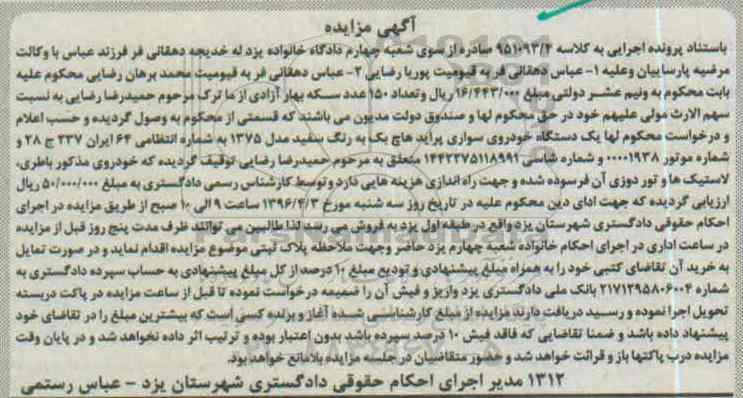 آگهی مزایده
باستناد پرونده اجرایی به کلاسه ۹۵۱۰۹۳/۴ صادره از سوی شعبه چهارم دادگاه خانواده یزد له خدیجه دهقانی فر فرزند عباس با وکالت
مرضیه پارساییان وعلیه ۱- عباس دهقانی فر به قیومیت پوریا رضایی ۲- عباس دهقانی فر به قیومیت محمد برهان رضایی محکوم علیه
بابت محکوم به ونیم عشر دولتی مبلغ ۱۶/۴۴۳/۰۰۰ ریال وتعداد ۱۵۰ عدد سکه بهار آزادی از ما ترک مرحوم حمیدرضا رضایی به نسبت
سهم الارث مولی علیهم خود در حق محکوم لها و صندوق دولت مدیون می باشند که قسمتی از محکوم به وصول گردیده و حسب اعلام
و درخواست محکوم لها یک دستگاه خودروی سواری پراید هاچ بک به رنگ سفید مدل ۱۳۷۵ به شماره انتظامی ۶۴ ایران ۳۳۷ ج ۲۸ و
شماره موتور ۰۰۰۰۱۹۳۸ و شماره شاسی ۱۴۴۲۲۷۵۱۱۸۹۹۱ متعلق به مرحوم حمیدرضا رضایی توقیف گردیده که خودروی مذکور باطری،
لاستیک ها و تور دوزی آن فرسوده شده و جهت راه اندازی هزینه هایی دارد وتوسط کارشناس رسمی دادگستری به مبلغ ۵۰/۰۰۰/۰۰۰ ریال
ارزیابی گردیده که جهت ادای دین محکوم علیه در تاریخ روز سه شنبه مورخ ۱۳۹۶/۴/۳ ساعت ۹ الی ۱۰ صبح از طریق مزایده در اجرای
احکام حقوقی دادگستری شهرستان یزد واقع در طبقه اول یزد به فروش می رسد لذا طالبین می توانند ظرف مدت پنج روز قبل از مزایده
در ساعت اداری در اجرای احکام خانواده شعبه چهارم یزد حاضر وجهت ملاحظه پلاک ثبتی موضوع مزایده اقدام نماید و در صورت تمایل
به خرید آن تقاضای کتبی خود را به همراه مبلغ پیشنهادی و تودیع مبلغ ۱۰ درصد از کل مبلغ پیشنهادی به حساب سپرده دادگستری به
شماره ۲۱۷۱۲۹۵۸۰۶۰۰۴ بانک ملی دادگستری یزد واریز و فیش آن را ضمیمه درخواست نموده تا قبل از ساعت مزایده در پاکت دربسته
تحویل اجرا نموده و رسید دریافت دارند مزایده از مبلغ کارشناسی شده آغاز و برنده کسی است که بیشترین مبلغ را در تقاضای خود
پیشنهاد داده باشد و ضمنا تقاضایی که فاقد فیش ۱۰ درصد سپرده باشد بدون اعتبار بوده و ترتیب اثر داده نخواهد شد و در پایان وقت
مزایده درب پاکتها باز و قرائت خواهد شد و حضور متقاضیان در جلسه مزایده بلامانع خواهد بود.
۱۳۱۲ مدیر اجرای احکام حقوقی دادگستری شهرستان یزد - عباس رستمی